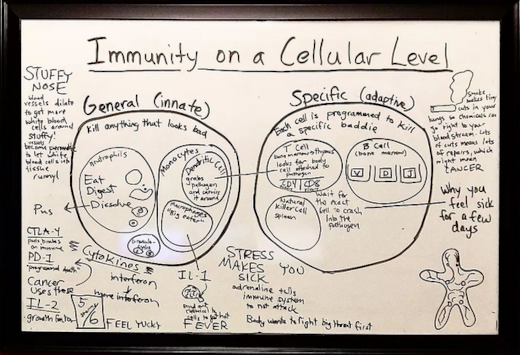 Immunity on a Cellular Level
STUFFY
NOSE
blood
vessels dilate
to get more
white blood
cells around
STUFFY
vessels
become permeable
to let white
blood cells into
tissue
runny
Pus
CTLA-4
puts brakes
on immune
PD-1
programmed death
Cancer
uses those
IL-2
growth factor
General (innate)
kill anything that looks bad
Eat
Digest
Dissolve
Monocytes
Dendritic Cell
grabs
pathogen and
carries it
around
Macrophages
big eaters
Cytokines
interferon
interferon
5
6
FEEL YUCKY
IL-1
FEVER
Specific (adaptive)
Each cell is programmed to kill
a specific baddie
T Cell
bone marrow → thymus
looks for body
cell attached to
pathogen
CD4
CD8
B Cell
(bone marrow)
V
D
J
Natural
Killer Cell
spleen
Wait for
the next
cell to crash
into the
pathogen
STRESS
MAKES YOU
SICK
adrenaline tells
immune system
to not attack
Body wants to fight big threat first
Smoke
makes tiny
cuts in your
lungs so chemicals can
go right to your
blood stream. Lots
of cuts means lots
of repairs, which
might mean
CANCER
Why you
feel sick
for a few
days